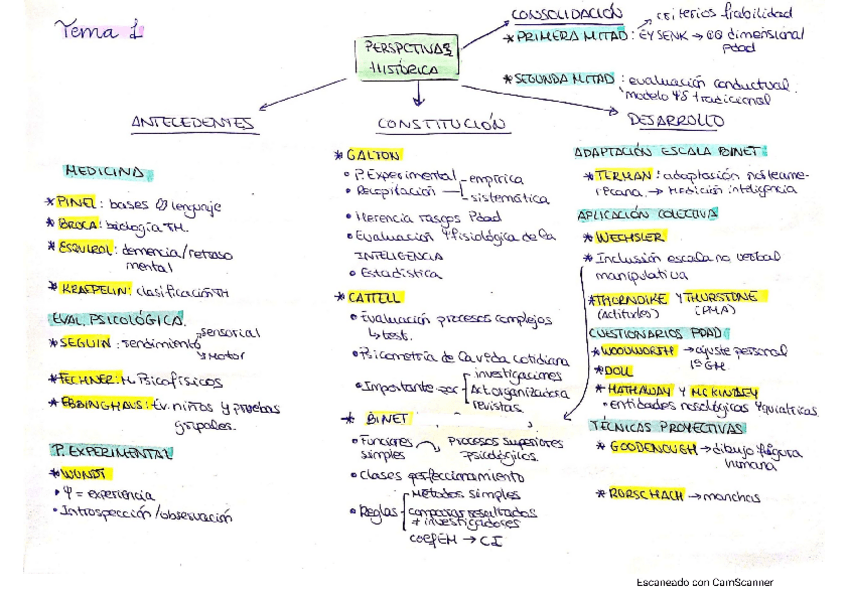 Tema 1
PERSPCTIVA
HISTÓRICA
CONSOLIDACIÓN
criterios fiabilidad
* PRIMERA MITAD: EYSENK → CQ dimensional
Pdad
* SEGUNDA MITAD: evaluación conductual.
modelo ΨS tradicional
ANTECEDENTES
MEDICINA
* PINEL: bases lenguaje
* BROCA: biología TM.
* ESQUIROL: demencia/retraso
mental
* KRAEPELIN: clasificación TM
EVAL. PSICOLÓGICA.
* SEGUIN: rendimiento
sensorial
Motor
* FECHNER: M. Psicofísicos
* EBBINGHAUS: Ev. niños y pruebas
grupales.
P. EXPERIMENTAL
* WUNDT
• Ψ = experiencia
• Introspección/observación
CONSTITUCIÓN
* GALTON
• P. Experimental
• Recopilación
empírica
sistemática
• Herencia rasgos Pdad
• Evaluación Ψfisiológica de la
INTELIGENCIA
• Estadística
* CATTELL
• Evaluación procesos complejos
↳ test.
• Psicometría de la vida cotidiana
• Importante
investigaciones
Act. organizadora
revistas.
* BINET
• Funciones
simples
procesos superiores
psicológicos.
• Clases perfeccionamiento
• Reglas
Métodos simples
comparar resultados
+ investigadores
coef EM → CI
DESARROLLO
ADAPTACIÓN ESCALA BINET:
* TERMAN: adaptación norteame-
ricana. → Medición inteligencia
APLICACIÓN COLECTIVA
* WECHSLER
* Inclusión escala no verbal
manipulativa
* THORNDIKE Y THURSTONE
(actitudes) (PMA)
CUESTIONARIOS PDAD:
* WOODWORTH → ajuste personal
1ª GM.
* DOLL
* HATHAWAY Y MCKINLEY
• entidades nosológicas Ψquiatricas
TÉCNICAS PROYECTIVAS
* GOODENOUGH → dibujo figura
humana
* RORSCHACH → manchas
Escaneado con CamScanner